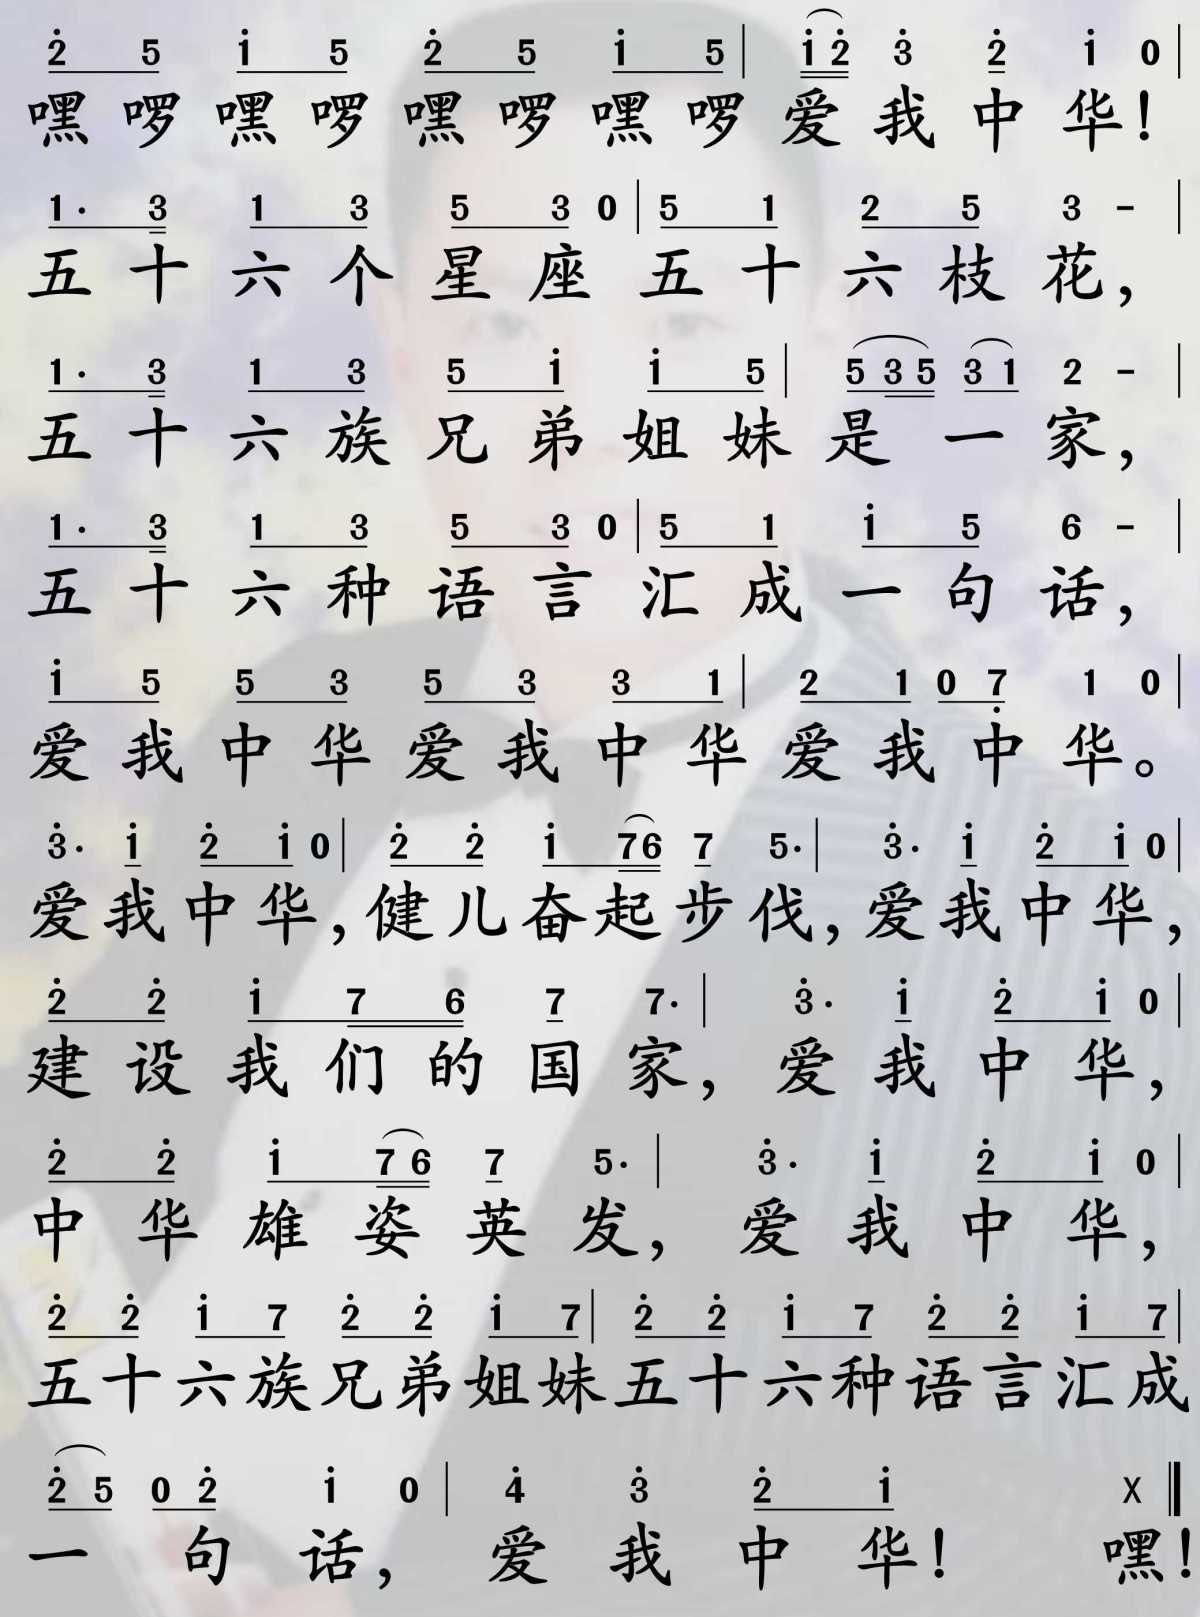 2̇ 5 1̇ 5 2̇ 5 1̇ 5 | 1̇ 2̇ 3̇ 2̇ 1̇ 0 |
嘿啰嘿啰嘿啰嘿啰爱我中华！
1· 3 1 3 5 3 0 | 5 1 2 5 3 - |
五十六个星座五十六枝花，
1· 3 1 3 5 1̇ 1̇ 5 | 5 3 5 3 1 2 - |
五十六族兄弟姐妹是一家，
1· 3 1 3 5 3 0 | 5 1 1̇ 5 6 - |
五十六种语言汇成一句话，
1̇ 5 5 3 5 3 3 1 | 2 1 0 7̣ 1 0 |
爱我中华爱我中华爱我中华。
3̇· 1̇ 2̇ 1̇ 0 | 2̇ 2̇ 1̇ 7 6 7 5· | 3̇· 1̇ 2̇ 1̇ 0 |
爱我中华，健儿奋起步伐，爱我中华，
2̇ 2̇ 1̇ 7 6 7 7· | 3̇· 1̇ 2̇ 1̇ 0 |
建设我们的国家，爱我中华，
2̇ 2̇ 1̇ 7 6 7 5· | 3̇· 1̇ 2̇ 1̇ 0 |
中华雄姿英发，爱我中华，
2̇ 2̇ 1̇ 7 2̇ 2̇ 1̇ 7 | 2̇ 2̇ 1̇ 7 2̇ 2̇ 1̇ 7 |
五十六族兄弟姐妹五十六种语言汇成
2̇ 5 0 2̇ 1̇ 0 | 4̇ 3̇ 2̇ 1̇ X ‖
一句话，爱我中华！嘿！